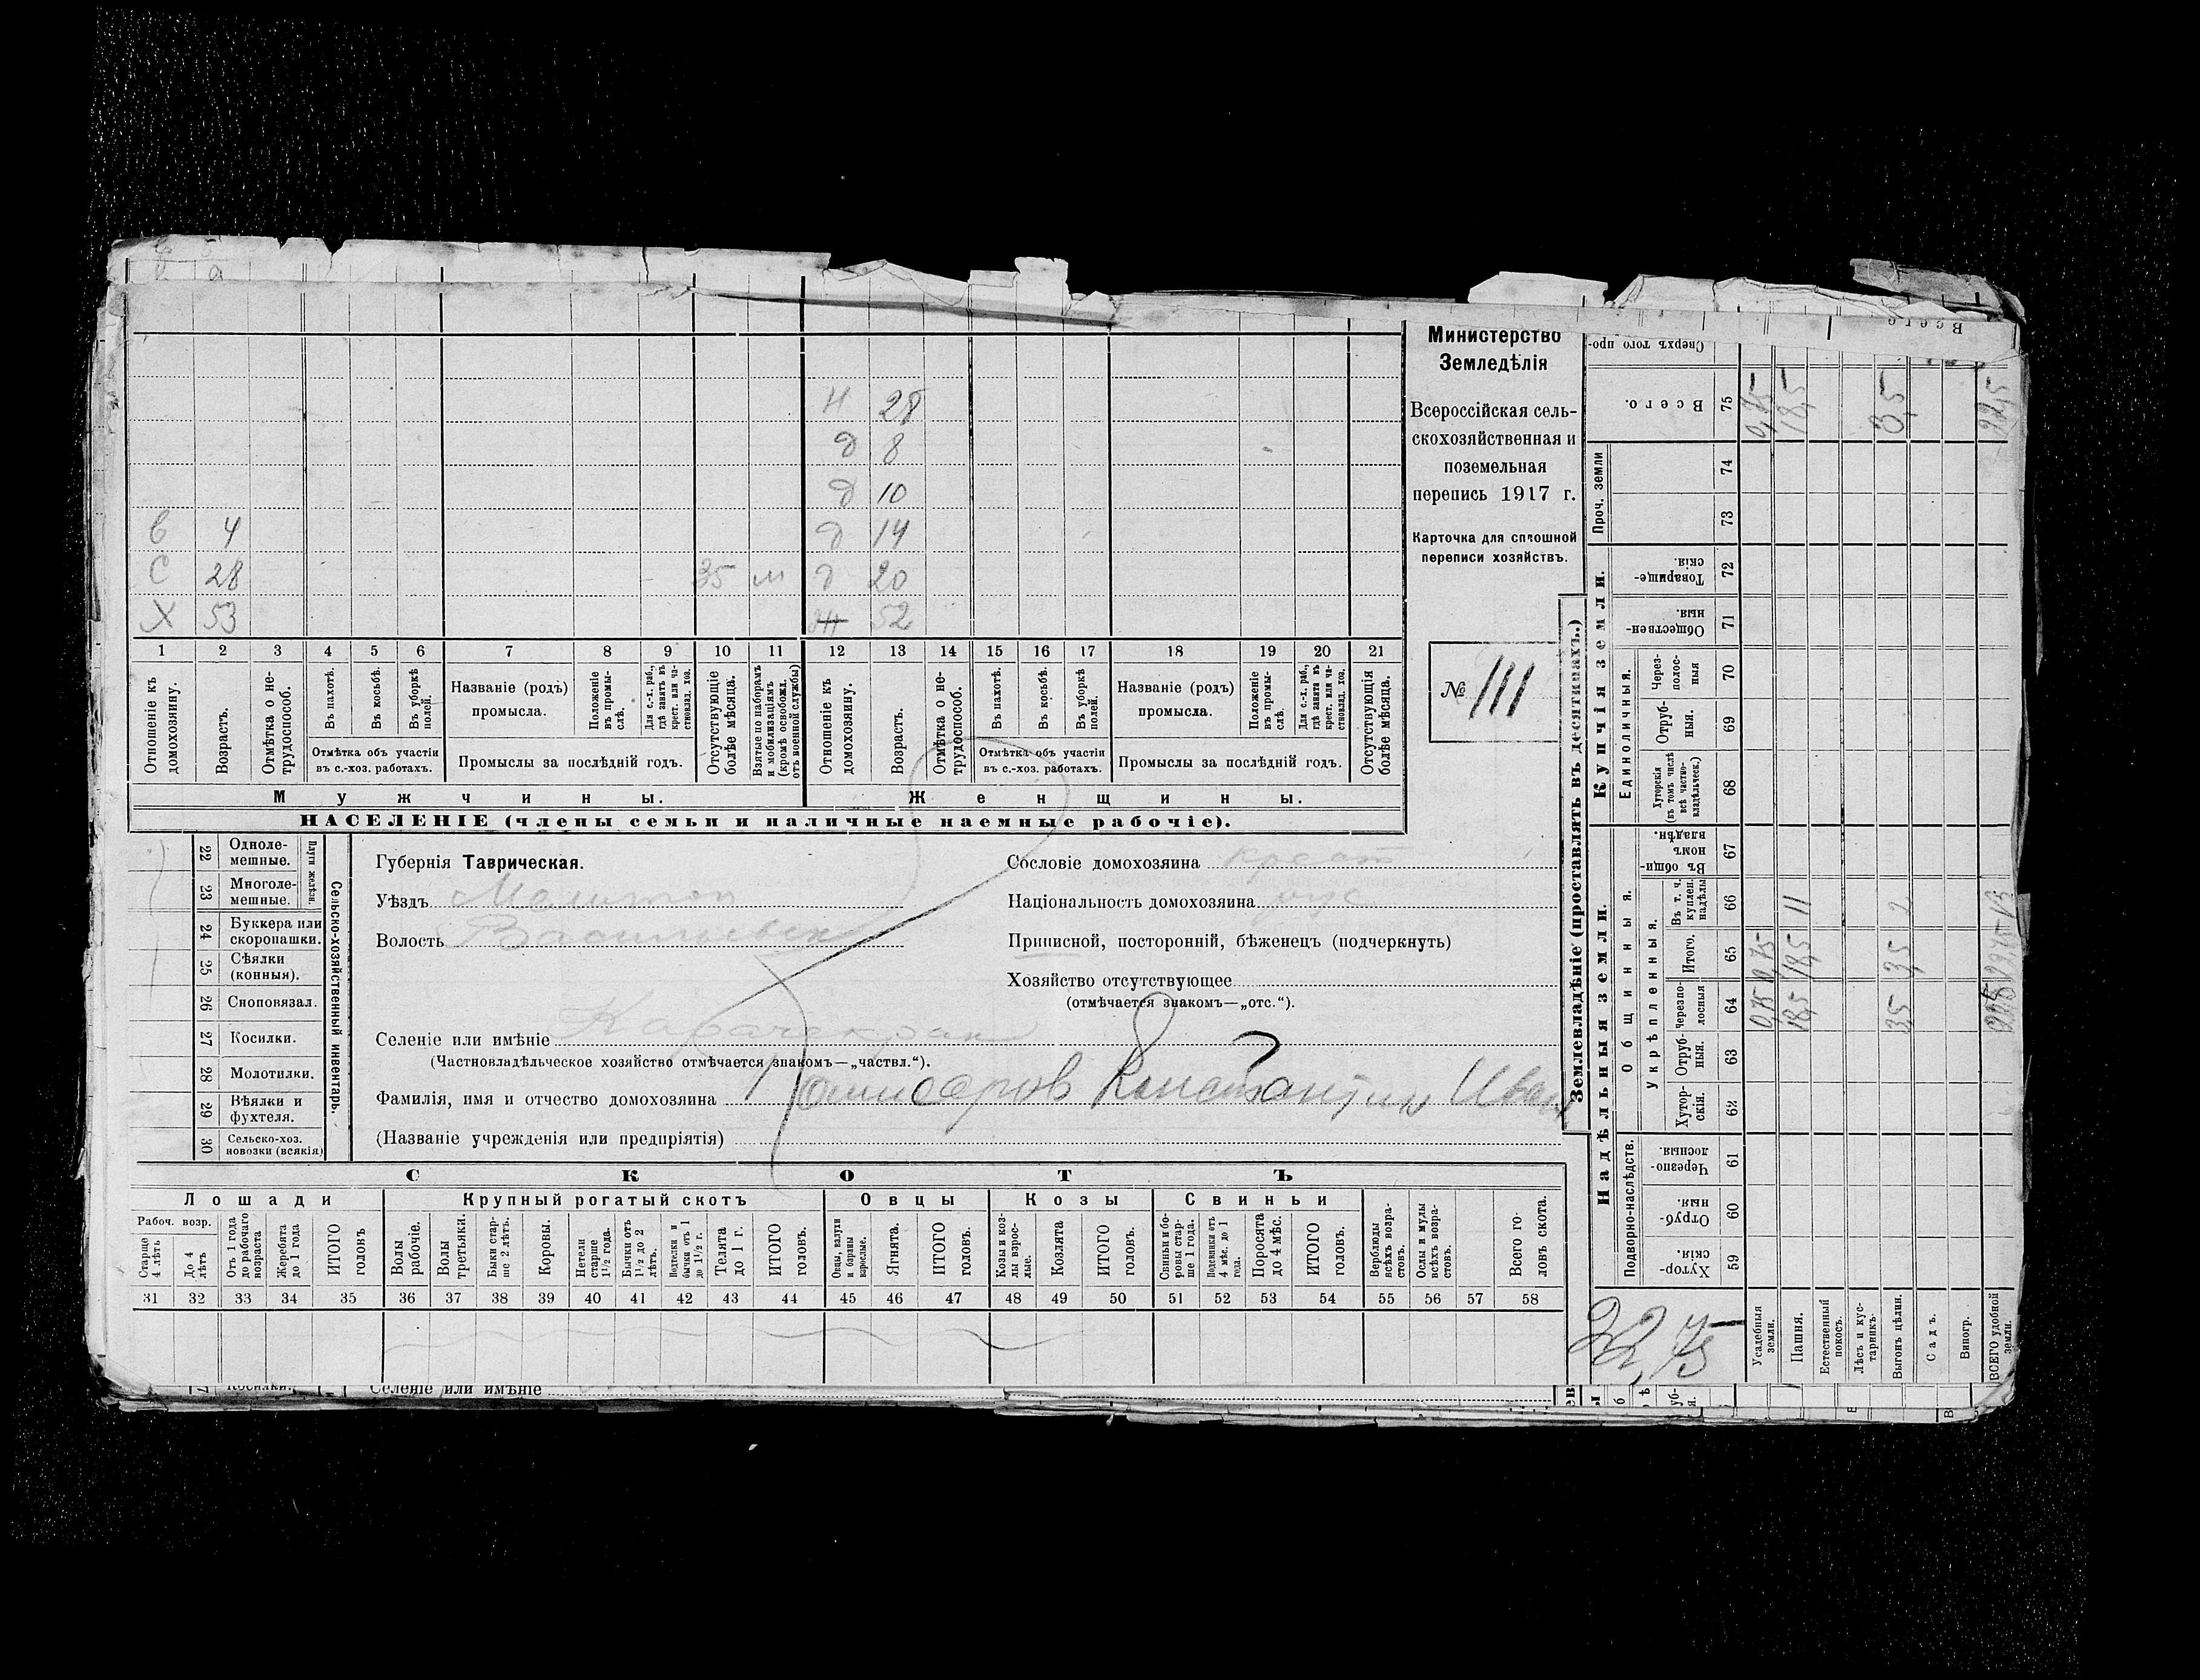 Министерство
Земледѣлія
Всероссійская сель-
скохозяйственная и
поземельная
перепись 1917 г.
Карточка для сплошной
переписи хозяйствъ.
№ 111
Н 28
д 8
д 10
в 4 д 14
С 28 35 м д 20
Х 53 Ж 52
1 2 3 4 5 6 7 8 9 10 11 12 13 14 15 16 17 18 19 20 21
Отношеніе къ домохозяину.
Возрастъ.
Отмѣтка о не-трудоспособ.
Въ пахотѣ.
Въ косьбѣ.
Въ уборкѣ полей.
Отмѣтка объ участіи
въ с.-хоз. работахъ.
Названіе (родъ)
промысла.
Положеніе въ промы-слѣ.
Для с.-х. раб., гдѣ занятъ въ крест. или ча-ствовлад. хоз.
Промыслы за послѣдній годъ.
Отсутствующіе болѣе мѣсяца.
Взятые по наборамъ и мобилизаціямъ (кромѣ освобожд. отъ военной службы)
Отношеніе къ домохозяину.
Возрастъ.
Отмѣтка о не-трудоспособ.
Въ пахотѣ.
Въ косьбѣ.
Въ уборкѣ полей.
Отмѣтка объ участіи
въ с.-хоз. работахъ.
Названіе (родъ)
промысла.
Положеніе въ промы-слѣ.
Для с.-х. раб., гдѣ занята въ крест. или ча-ствовлад. хоз.
Промыслы за послѣдній годъ.
Отсутствующія болѣе мѣсяца.
Мужчины. Женщины.
НАСЕЛЕНІЕ (члены семьи и наличные наемные рабочіе).
22 Одноле-мешные.
23 Многоле-мешные.
Плуги желѣзн.
24 Буккера или скоропашки.
25 Сѣялки (конныя).
26 Сноповязал.
27 Косилки.
28 Молотилки.
29 Вѣялки и фухтеля.
30 Сельско-хоз. повозки (всякія)
Сельско-хозяйственный инвентарь.
Губернія Таврическая.
Уѣздъ Мелитоп
Волость Васильевск
Селеніе или имѣніе Карачекрак
(Частновладѣльческое хозяйство отмѣчается знакомъ—„частвл.“).
Фамилія, имя и отчество домохозяина Комисаров Константин Иван
(Названіе учрежденія или предпріятія)
Сословіе домохозяина крест
Національность домохозяина рус
Приписной, посторонній, бѣженецъ (подчеркнуть)
Хозяйство отсутствующее
(отмѣчается знакомъ—„отс.“).
СКОТЪ
Лошади Крупный рогатый скотъ Овцы Козы Свиньи
Рабоч. возр.
Старше 4 лѣтъ
До 4 лѣтъ
Отъ 1 года до рабочаго возраста
Жеребята до 1 года
ИТОГО головъ
Волы рабочіе.
Волы третьяки.
Быки стар-ше 2 лѣтъ.
Коровы.
Нетели старше 1½ года.
Бычки отъ 1½ до 2 лѣтъ.
Подтелки и бычки отъ 1 до 1½ г.
Телята до 1 г.
ИТОГО головъ.
Овцы, валухи и бараны взрослые.
Ягнята.
ИТОГО головъ.
Козы и коз-лы взрос-лые.
Козлята
ИТОГО головъ.
Свиньи и бо-ровы стар-ше 1 года.
Подсвинки отъ 4 мѣс. до 1 года.
Поросята до 4 мѣс.
ИТОГО головъ.
Верблюды всѣхъ возра-стовъ.
Ослы и мулы всѣхъ возра-стовъ.
Всего го-ловъ скота.
31 32 33 34 35 36 37 38 39 40 41 42 43 44 45 46 47 48 49 50 51 52 53 54 55 56 57 58
Селеніе или имѣніе
Землевладѣніе (проставлять въ десятинахъ.)
Надѣльныя земли. Купчія земли.
Подворно-наслѣдств.
Общинныя.
Укрѣпленныя.
Единоличныя.
Проч. земли
Хутор-скія. 59
Отруб-ныя. 60
Черезпо-лосныя. 61
Хутор-скія. 62
Отруб-ныя. 63
Черезпо-лосныя 64
Итого. 65
Въ т. ч. куплен. надѣлы 66
Въ общи-номъ владѣн. 67
Хуторскія (въ томъ числѣ всѣ частно-владѣльческ.) 68
Отруб-ныя. 69
Через-полос-ныя 70
Обществен-ныя. 71
Товарище-скія. 72
73
74
Всего. 75
Сверхъ того про-
Усадебныя земли. 0,75 0,75 0,75
Пашня. 18,5 18,5 11 18,5
Естественный покосъ.
Лѣсъ и кус-тарникъ.
Выгонъ цѣлин. 3,5 3,5 2 3,5
Садъ.
Виногр.
ВСЕГО удобной земли.
22,75
Всего